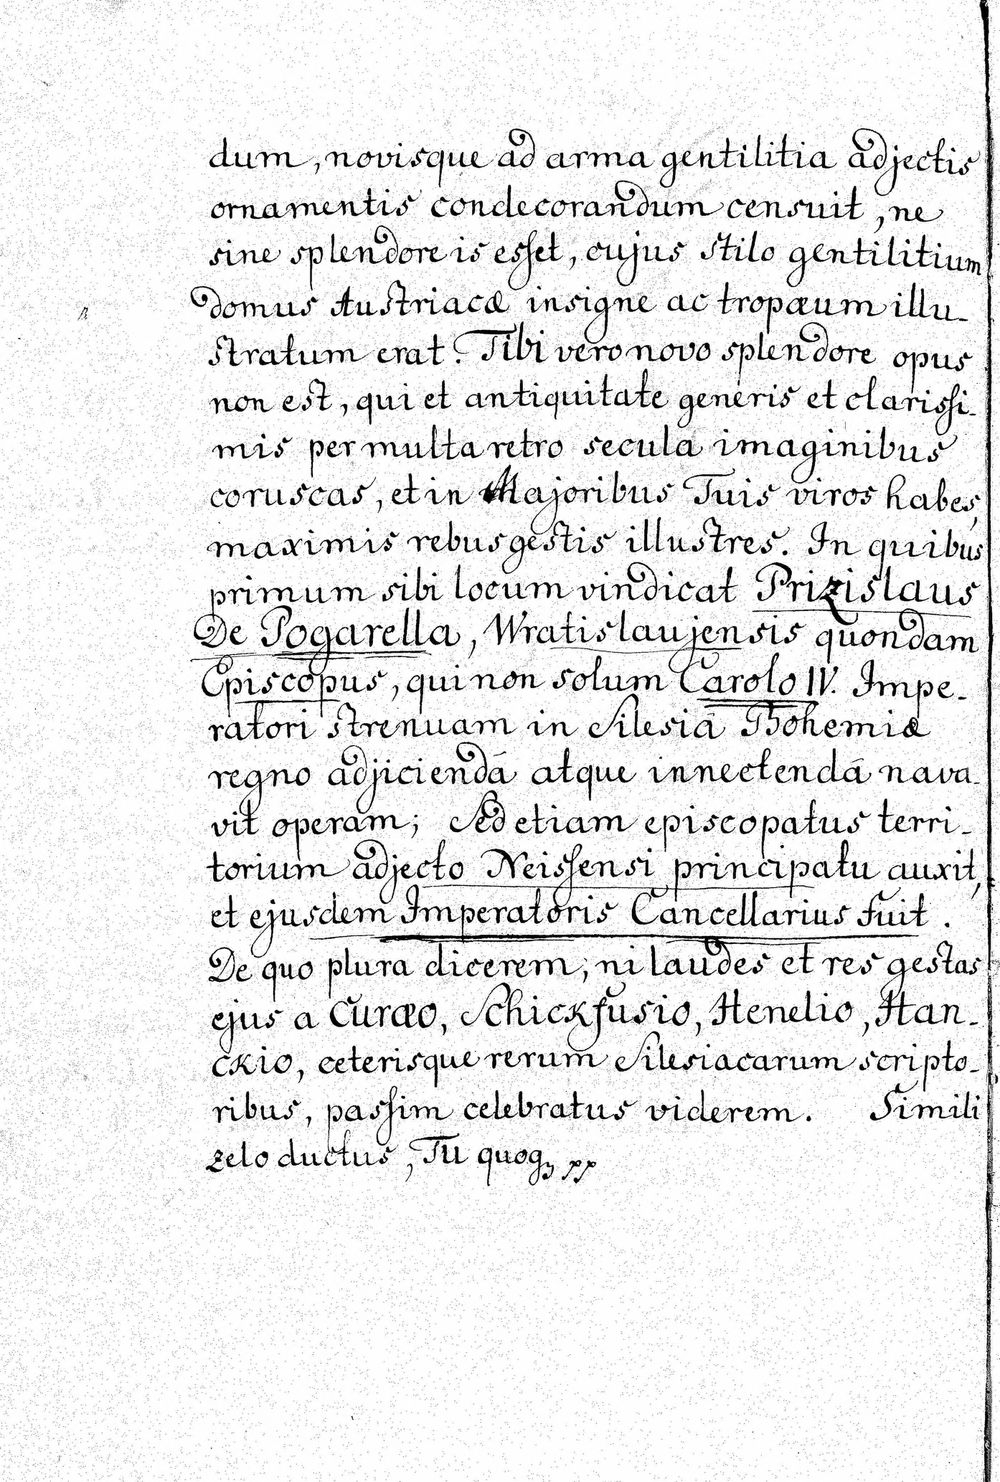 dum, novisque ad arma gentilitia adjectis
ornamentis condecorandum censuit, ne
sine splendore is esset, cujus stilo gentilitium
domus Austriacæ insigne ac tropæum illu-
stratum erat. Tibi vero novo splendore opus
non est, qui et antiquitate generis et clarissi-
mis per multa retro secula imaginibus
coruscas, et in Majoribus Tuis viros habes,
maximis rebus gestis illustres. In quibus
primum sibi locum vindicat Prizislaus
De Pogarella, Wratislaujensis quondam
Episcopus, qui non solum Carolo IV. Impe-
ratori strenuam in Silesiâ Bohemiæ
regno adjiciendâ atque innectendâ nava-
vit operam; Sed etiam episcopatus terri-
torium adjecto Neissensi principatu auxit,
et ejusdem Imperatoris Cancellarius fuit.
De quo plura dicerem, ni laudes et res gestas
ejus a Curæo, Schickfusio, Henelio, Han-
ckio, ceterisque rerum Silesiacarum scripto-
ribus, passim celebratus viderem. Simili
zelo ductus, Tu quoqꝫ pp